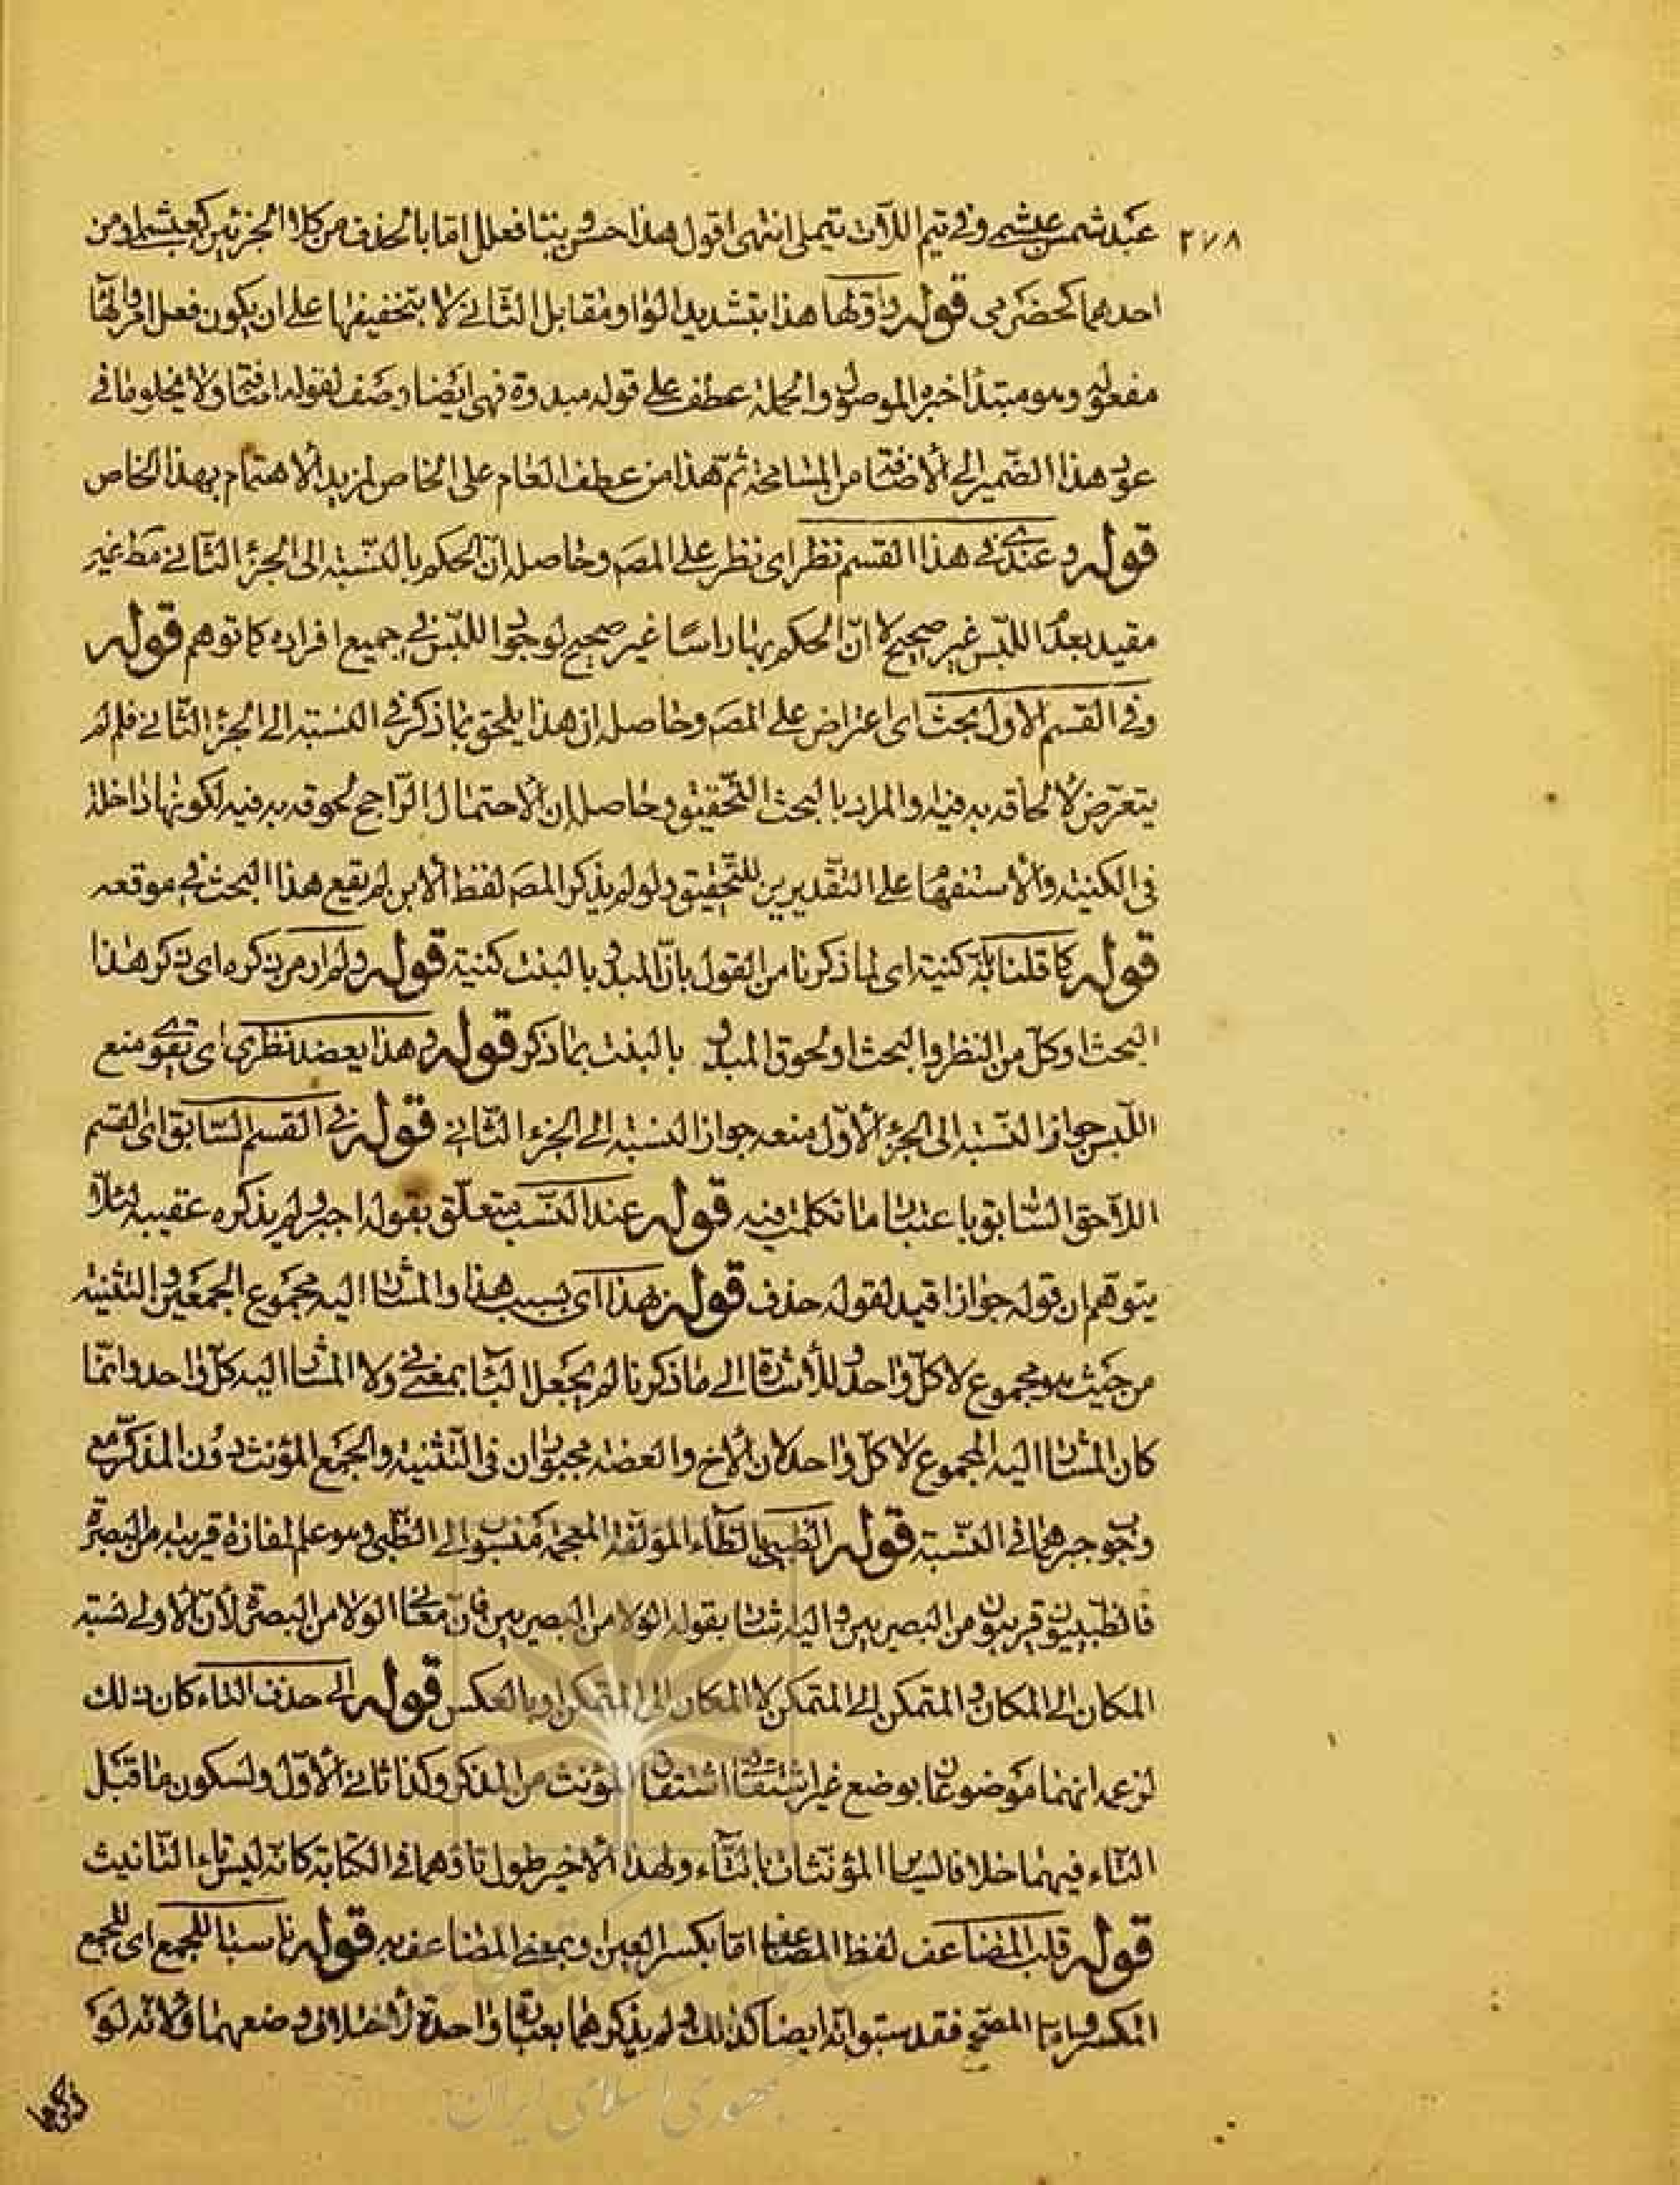 ٢٧٨
عبد شمس عبشمي وفي تيم اللات تيملي انتهى اقول هذا حسن بنا فعلل اما بالحذف من كلا الجزئين كعبشمي او من
احدهما كحضرمي قوله واولها هذا بتشديد الواو ومقابل الثاني لا بتخفيفها على ان يكون فعل امر ولها
مفعوله وهو مبتدأ خبره الموصول والجملة عطف على قوله مبدوة فهي ايضا وصف لقوله اضافة ولا يخلو ما في
عود هذا الضمير الى الاضافة من المسامحة ثم هذا من عطف العام على الخاص لمزيد الاهتمام بهذا الخاص
قوله وعندي في هذا القسم نظر اى نظر على المصـ وحاصله ان الحكم بالنسبة الى الجزء الثاني مط غير
مقيد بعدم اللبس غير صحيح لا ان الحكم بها راسا غير صحيح لوجود اللبس في جميع افراده كما توهم قوله
وفي القسم الاول بحث اى اعتراض على المصـ وحاصله ان هذا يلحق بما ذكر في النسبة الى الجزء الثاني فلم لم
يتعرض لالحاقه به فيه والمراد بالبحث التحقيق وحاصله ان الاحتمال الراجح لحوقه به فيه لكونها داخلة
في الكنية والاستفهام على التقديرين للتحقيق ولو لم يذكر المصـ لفظ الابن لم يقع هذا البحث في موقعه
قوله كما قلنا بانه كنية اى لما ذكرنا من القول بان المبدو بالبنت كنية قوله ولم ار من ذكره اى ذكر هذا
البحث او كل من النظر والبحث او لحوق المبدو بالبنت بما ذكر قوله وهذا يعضد نظرى اى تقوى منع
اللبس جواز النسبة الى الجزء الاول منعه جواز النسبة الى الجزء الثاني قوله في القسم السابق اى القسم
اللاحق السابق باعتبار ما تكلمت فيه قوله عند النسب متعلق بقوله اجبر ولم يذكره عقيبه لئلا
يتوهم ان قوله جوازا قيد لقوله حذف قوله بهذا اى بسبب هذا والمشار اليه مجموع الجمعين والتثنية
من حيث هو مجموع لا كل واحد وللاشارة الى ما ذكرنا لم يجعل الباء بمعنى في ولا المشار اليه كل واحد وانما
كان المشار اليه المجموع لا كل واحد لان الاخ والعضة مجبوران في التثنية والجمع المؤنث دون المذكر مع
وجوب جبرهما في النسبة قوله الظبي بالظاء المؤلفة المعجمة منسوب الى الظبى وهو علم لمفازة قريبة من البصرة
فالظبييون قريبون من البصريين واليه اشار بقوله الولا من البصريين فان معناه الولا من البصرة لان الاولى نسبة
المكان الى المكان والمتمكن الى المتمكن لا المكان الى المتمكن او بالعكس قوله الى حذف التاء كان ذلك
لزعمه انهما موضوعان بوضع غير اشتقاق المؤنث من المذكر وكذا ثاني الاول ولسكون ما قبل
التاء فيهما خلافا لسائر المؤنثات بالتاء ولهذا الاخير طول تاؤهما في الكتابة كانه ليس تاء التانيث
قوله قلب المضاعف لفظ المضاعف اما بكسر العين او بمعنى المضاعف به قوله ناسبا للجمع اى للجمع
المكسر واما المصحح فقد سبق انه ايضا كذلك ولم يذكرهما بعبارة واحدة لاختلاف وضعهما ولانه لو
ذكرهما
جمهوری اسلامی ایران